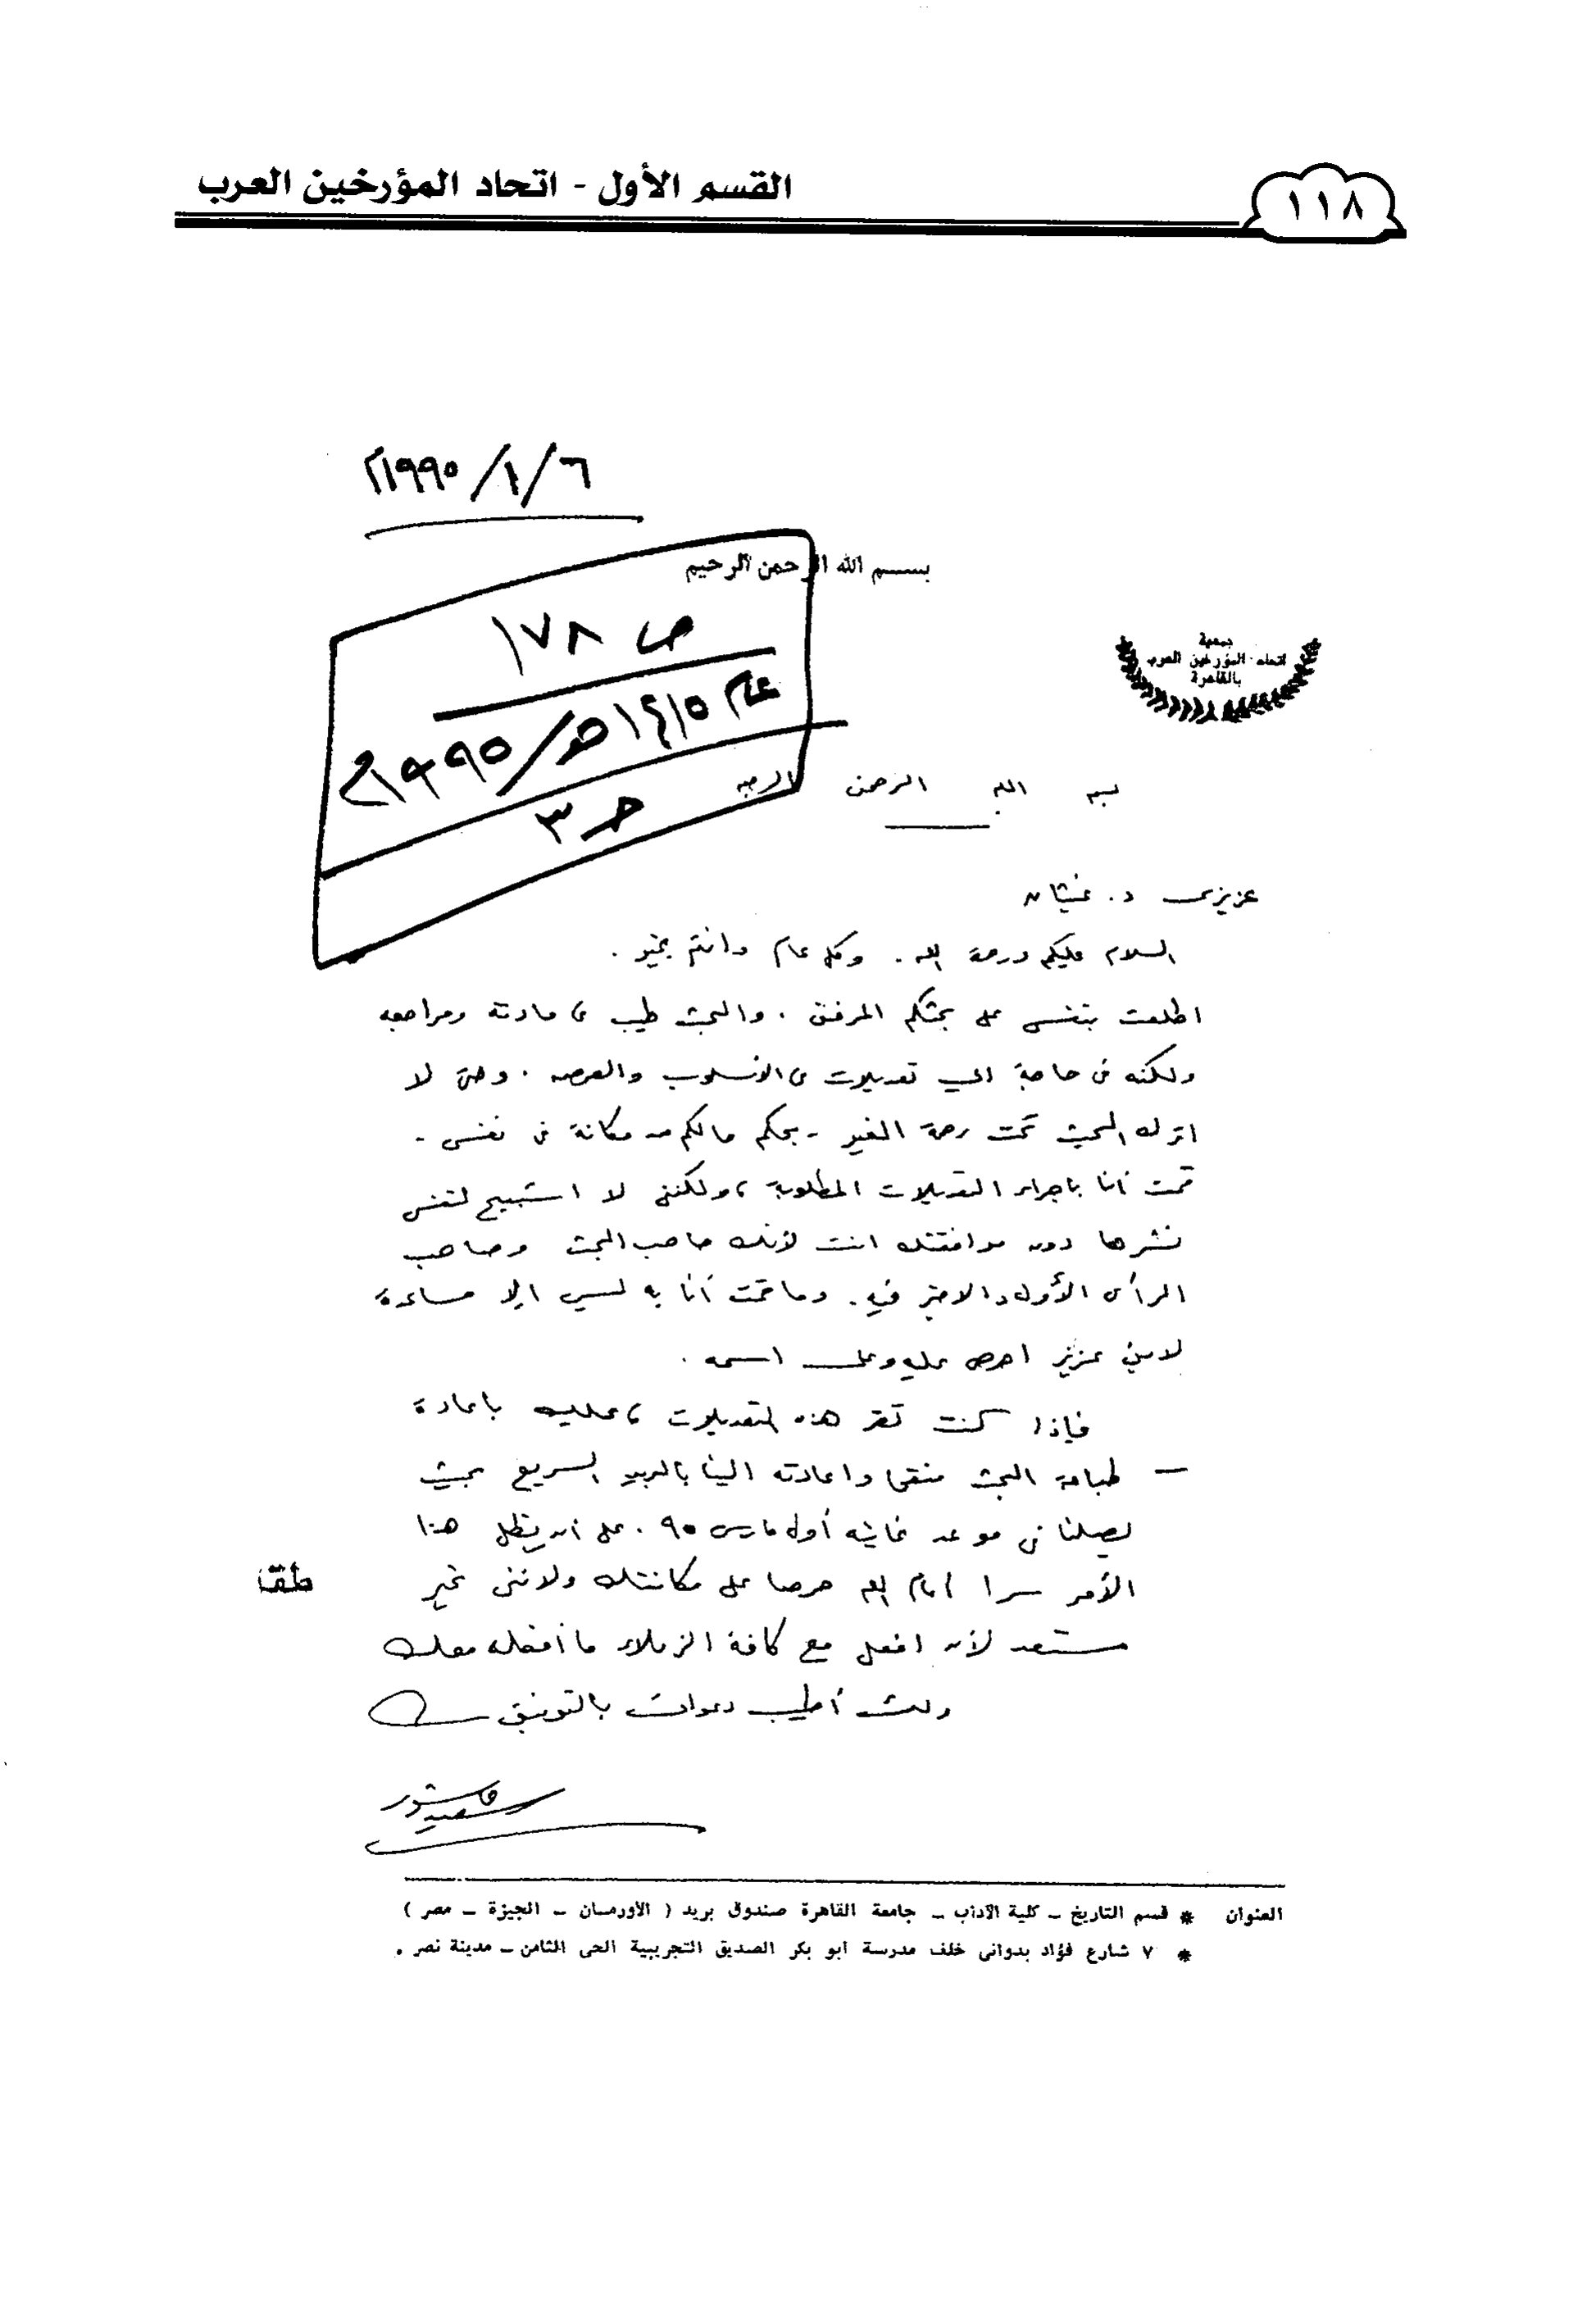 القسم الأول - اتحاد المؤرخين العرب
١١٨
٦/١/١٩٩٥م
بسم الله الرحمن الرحيم
ص ١٧٨
عام ١٤١٥هـ/١٩٩٥م
حـ ٣
جمعية
اتحاد المؤرخين العرب
بالقاهرة
بسم الله الرحمن الرحيم
عزيزى د. غيثان
السلام عليكم ورحمة الله. وكل عام وانتم بخير.
اطلعت بنفسى على بحثكم المرفق. والبحث طيب فى مادته ومراجعه
ولكنه فى حاجة الى تعديلات فى الاسلوب والعرض. وحتى لا
اترك البحث تحت رحمة الغير - بحكم مالكم من مكانة فى نفسى -
قمت أنا باجراء التعديلات المطلوبة، ولكننى لا استبيح لنفسى
نشرها دون موافقتك انت لأنك صاحب البحث وصاحب
الرأى الأول والاخير فيه. وما قمت أنا به ليس الا مساعدة
لابن عزيز احرص عليه وعلى اسمه.
فإذا كنت تقر هذه التعديلات، عليك باعادة
– طباعة البحث منقى واعادته الينا بالبريد السريع بحيث
يصلنا فى موعد غايته أول مارس ٩٥. على أن يظل هذا
الأمر سرا أمام الله حرصا على مكانتك ولاننى غير
مستعد لأن افعل مع كافة الزملاء ما أفعله معك
ولك أطيب دعواتى بالتوفيق
سعيد عاشور
العنوان * قسم التاريخ - كلية الآداب - جامعة القاهرة صندوق بريد ( الأورمان - الجيزة - مصر )
* ٧ شارع فؤاد بدوانى خلف مدرسة ابو بكر الصديق التجريبية الحى الثامن - مدينة نصر .